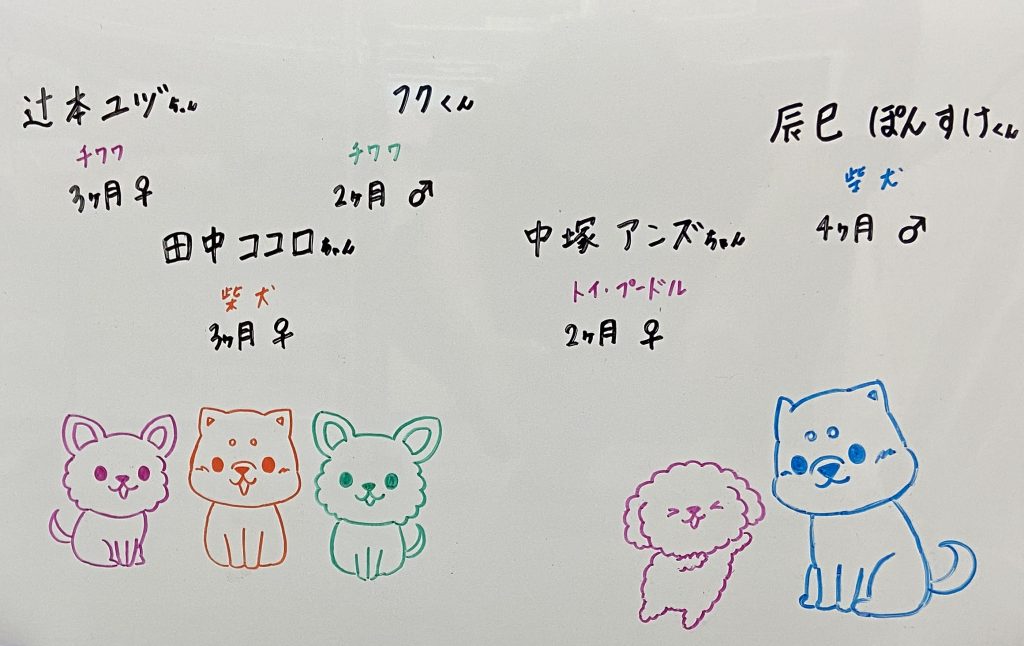 辻本ユヅちゃん
チワワ
3ヶ月 ♀
フクくん
チワワ
2ヶ月 ♂
辰巳 ぽんすけくん
柴犬
4ヶ月 ♂
田中ココロちゃん
柴犬
3ヶ月 ♀
中塚 アンズちゃん
トイ・プードル
2ヶ月 ♀